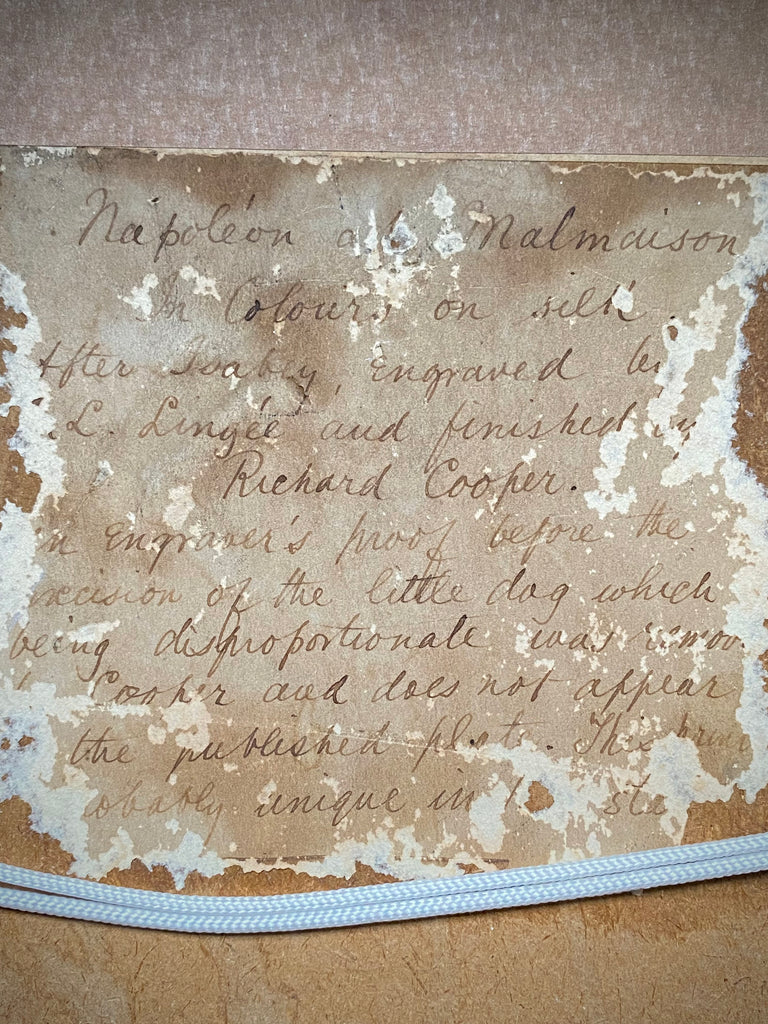 Napoléon at Malmaison
In Colours on silk.
After Isabey, engraved by
L. Lingée and finished by
Richard Cooper.
An engraver's proof before the
excision of the little dog which
being disproportionate was remov
Cooper and does not appear
the published plate. This print
obably unique in sta